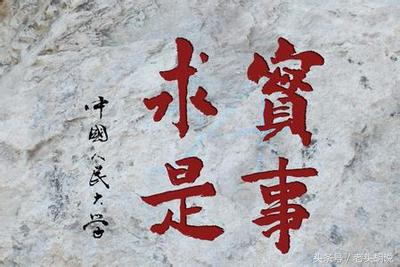 實事
求是
中國人民大學
头条号/老头胡说